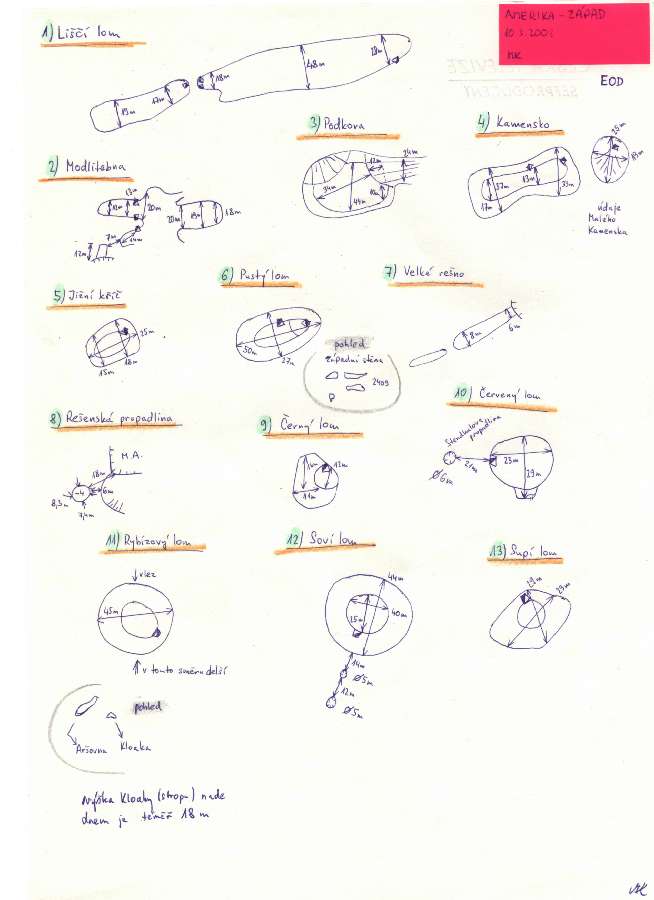 AMERIKA - ZÁPAD
10.3.2001
MK
EOD
1) Liščí lom
19m
17m
18m
48m
28m
2) Modlitebna
13m
12m
20m
20m
19m
18m
7m
14m
12m
3) Podkova
12m
24m
34m
44m
10m
4) Kamensko
37m
13m
39m
17m
25m
19m
údaje
Malého
Kamenska
5) Jižní kříž
25m
15m
18m
6) Pustý lom
50m
27m
pohled
západní stěna
2409
7) Velká rešno
8m
6m
8) Rešenská propadlina
M.A.
18m
-4
6m
8,5m
7,4m
9) Černý lom
12m
11m
10) Červený lom
propadlina
21m
Ø6m
25m
29m
11) Rybízový lom
vlez
45m
v tomto směru delší
pohled
Aršovna
Kloaka
Výška Kloaky (stropu) nade
dnem je téměř 18 m
12) Soví lom
44m
40m
25m
14m
Ø5m
12m
Ø5m
13) Supí lom
29m
29m
MK